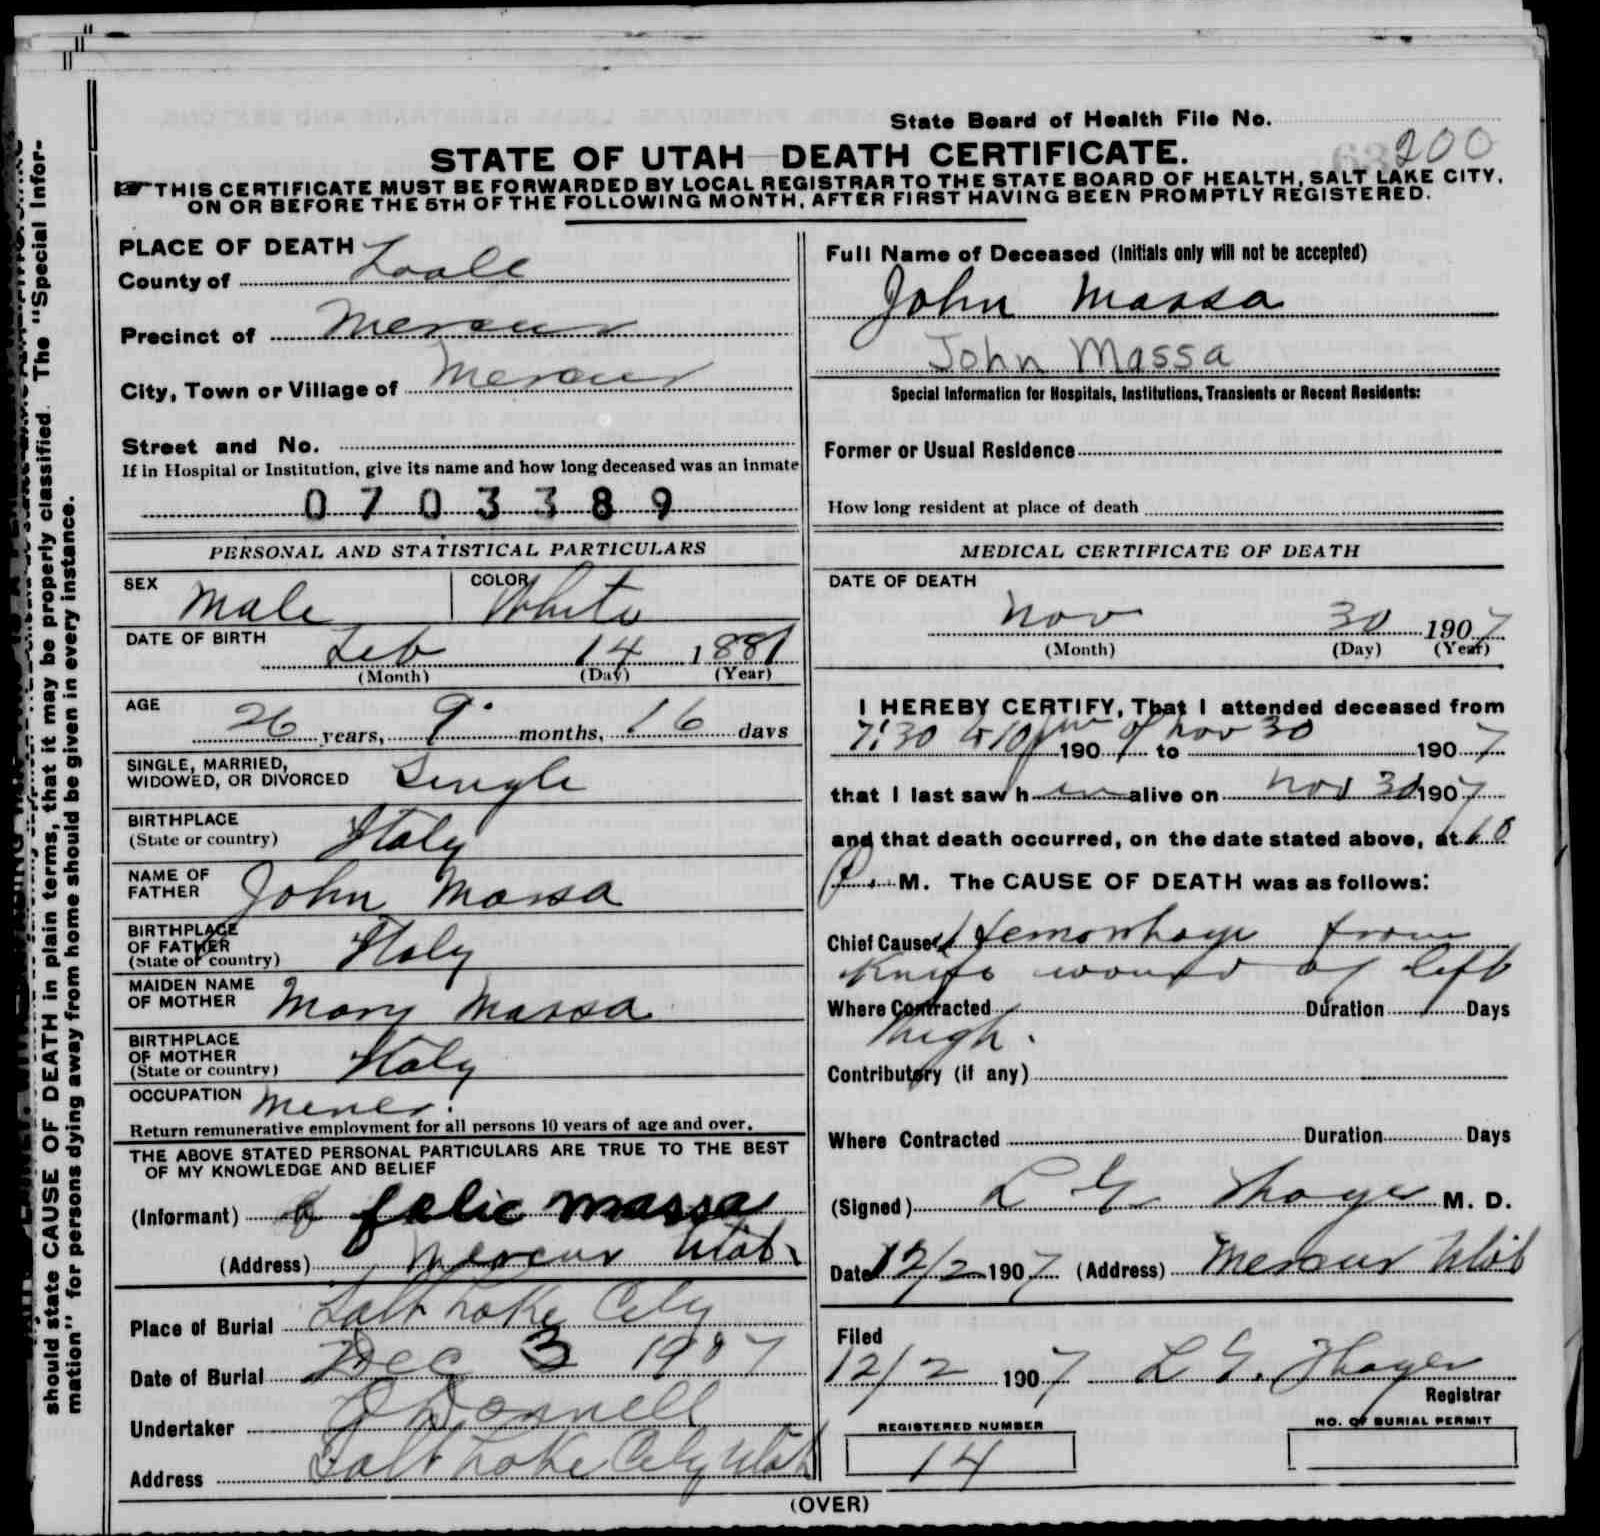 State Board of Health File No.
200
STATE OF UTAH DEATH CERTIFICATE.
THIS CERTIFICATE MUST BE FORWARDED BY LOCAL REGISTRAR TO THE STATE BOARD OF HEALTH, SALT LAKE CITY,
ON OR BEFORE THE 5TH OF THE FOLLOWING MONTH, AFTER FIRST HAVING BEEN PROMPTLY REGISTERED.
should state CAUSE OF DEATH in plain terms, that it may be properly classified. The "Special Infor-
mation" for persons dying away from home should be given in every instance.
PLACE OF DEATH
County of Tooele
Precinct of Mercur
City, Town or Village of Mercur
Street and No.
If in Hospital or Institution, give its name and how long deceased was an inmate
0703389
PERSONAL AND STATISTICAL PARTICULARS
SEX Male COLOR White
DATE OF BIRTH Feb 14 1881
(Month) (Day) (Year)
AGE
26 years, 9 months, 16 days
SINGLE, MARRIED,
WIDOWED, OR DIVORCED Single
BIRTHPLACE
(State or country) Italy
NAME OF
FATHER John Massa
BIRTHPLACE
OF FATHER
(State or country) Italy
MAIDEN NAME
OF MOTHER Mary Massa
BIRTHPLACE
OF MOTHER
(State or country) Italy
OCCUPATION Miner.
Return remunerative employment for all persons 10 years of age and over.
THE ABOVE STATED PERSONAL PARTICULARS ARE TRUE TO THE BEST
OF MY KNOWLEDGE AND BELIEF
(Informant) felic massa
(Address) Mercur Utah
Place of Burial Salt Lake City
Date of Burial Dec 3 1907
Undertaker O'Donnell
Address Salt Lake City Utah
Full Name of Deceased (Initials only will not be accepted)
John Massa
John Massa
Special Information for Hospitals, Institutions, Transients or Recent Residents:
Former or Usual Residence
How long resident at place of death
MEDICAL CERTIFICATE OF DEATH
DATE OF DEATH
Nov 30 1907
(Month) (Day) (Year)
I HEREBY CERTIFY, That I attended deceased from
7:30 to 10 pm 1907 to of Nov 30 1907
that I last saw him alive on Nov 30 1907
and that death occurred, on the date stated above, at 10
P. M. The CAUSE OF DEATH was as follows:
Chief Cause Hemorrhage from
Knife wound of left
Where Contracted Duration Days
thigh.
Contributory (if any)
Where Contracted Duration Days
(Signed) L G Thayer M. D.
Date 12/2 1907 (Address) Mercur Utah
Filed
12/2 1907 L G. Thayer
Registrar
REGISTERED NUMBER
14
NO. OF BURIAL PERMIT
(OVER)